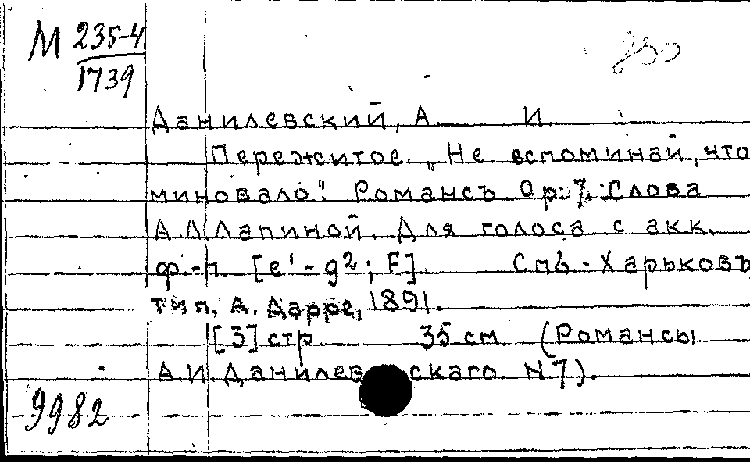 М 235-4
1739
Данилевский, А. И.
Пережитое. „Не вспоминай, что
миновало". Романсъ Ор. 7. Слова
А.Л.Лапиной. Для голоса с акк.
ф.-п. [e'-g²; F]. Спб.-Харьковъ
тип. А. Дарре, 1891.
[3] стр 35 см (Романсы
А.И.Данилевскаго N.7).
9982